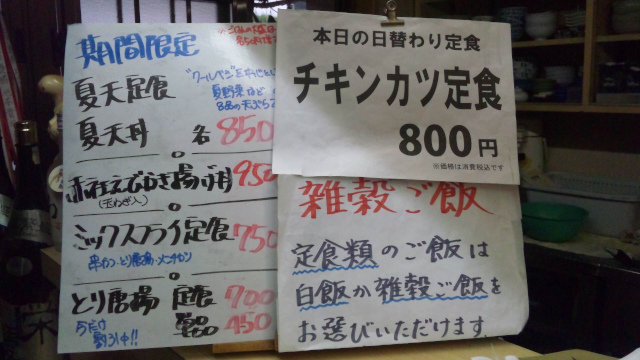 期間限定
夏天定食
夏天丼 各850
夏野菜など
8品の天ぷら
かき揚げ丼 950
(玉ねぎ入)
ミックスフライ定食 750
串カツ・とり唐揚・メンチカツ
とり唐揚 定食 700
単品 450
今だけ
割引中!!
本日の日替わり定食
チキンカツ定食
800円
※価格は消費税込です
雑穀ご飯
定食類のご飯は
白飯か雑穀ご飯を
お選びいただけます